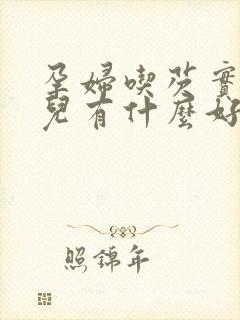 孕婦喫芡實
兒有什麼好
照錦年